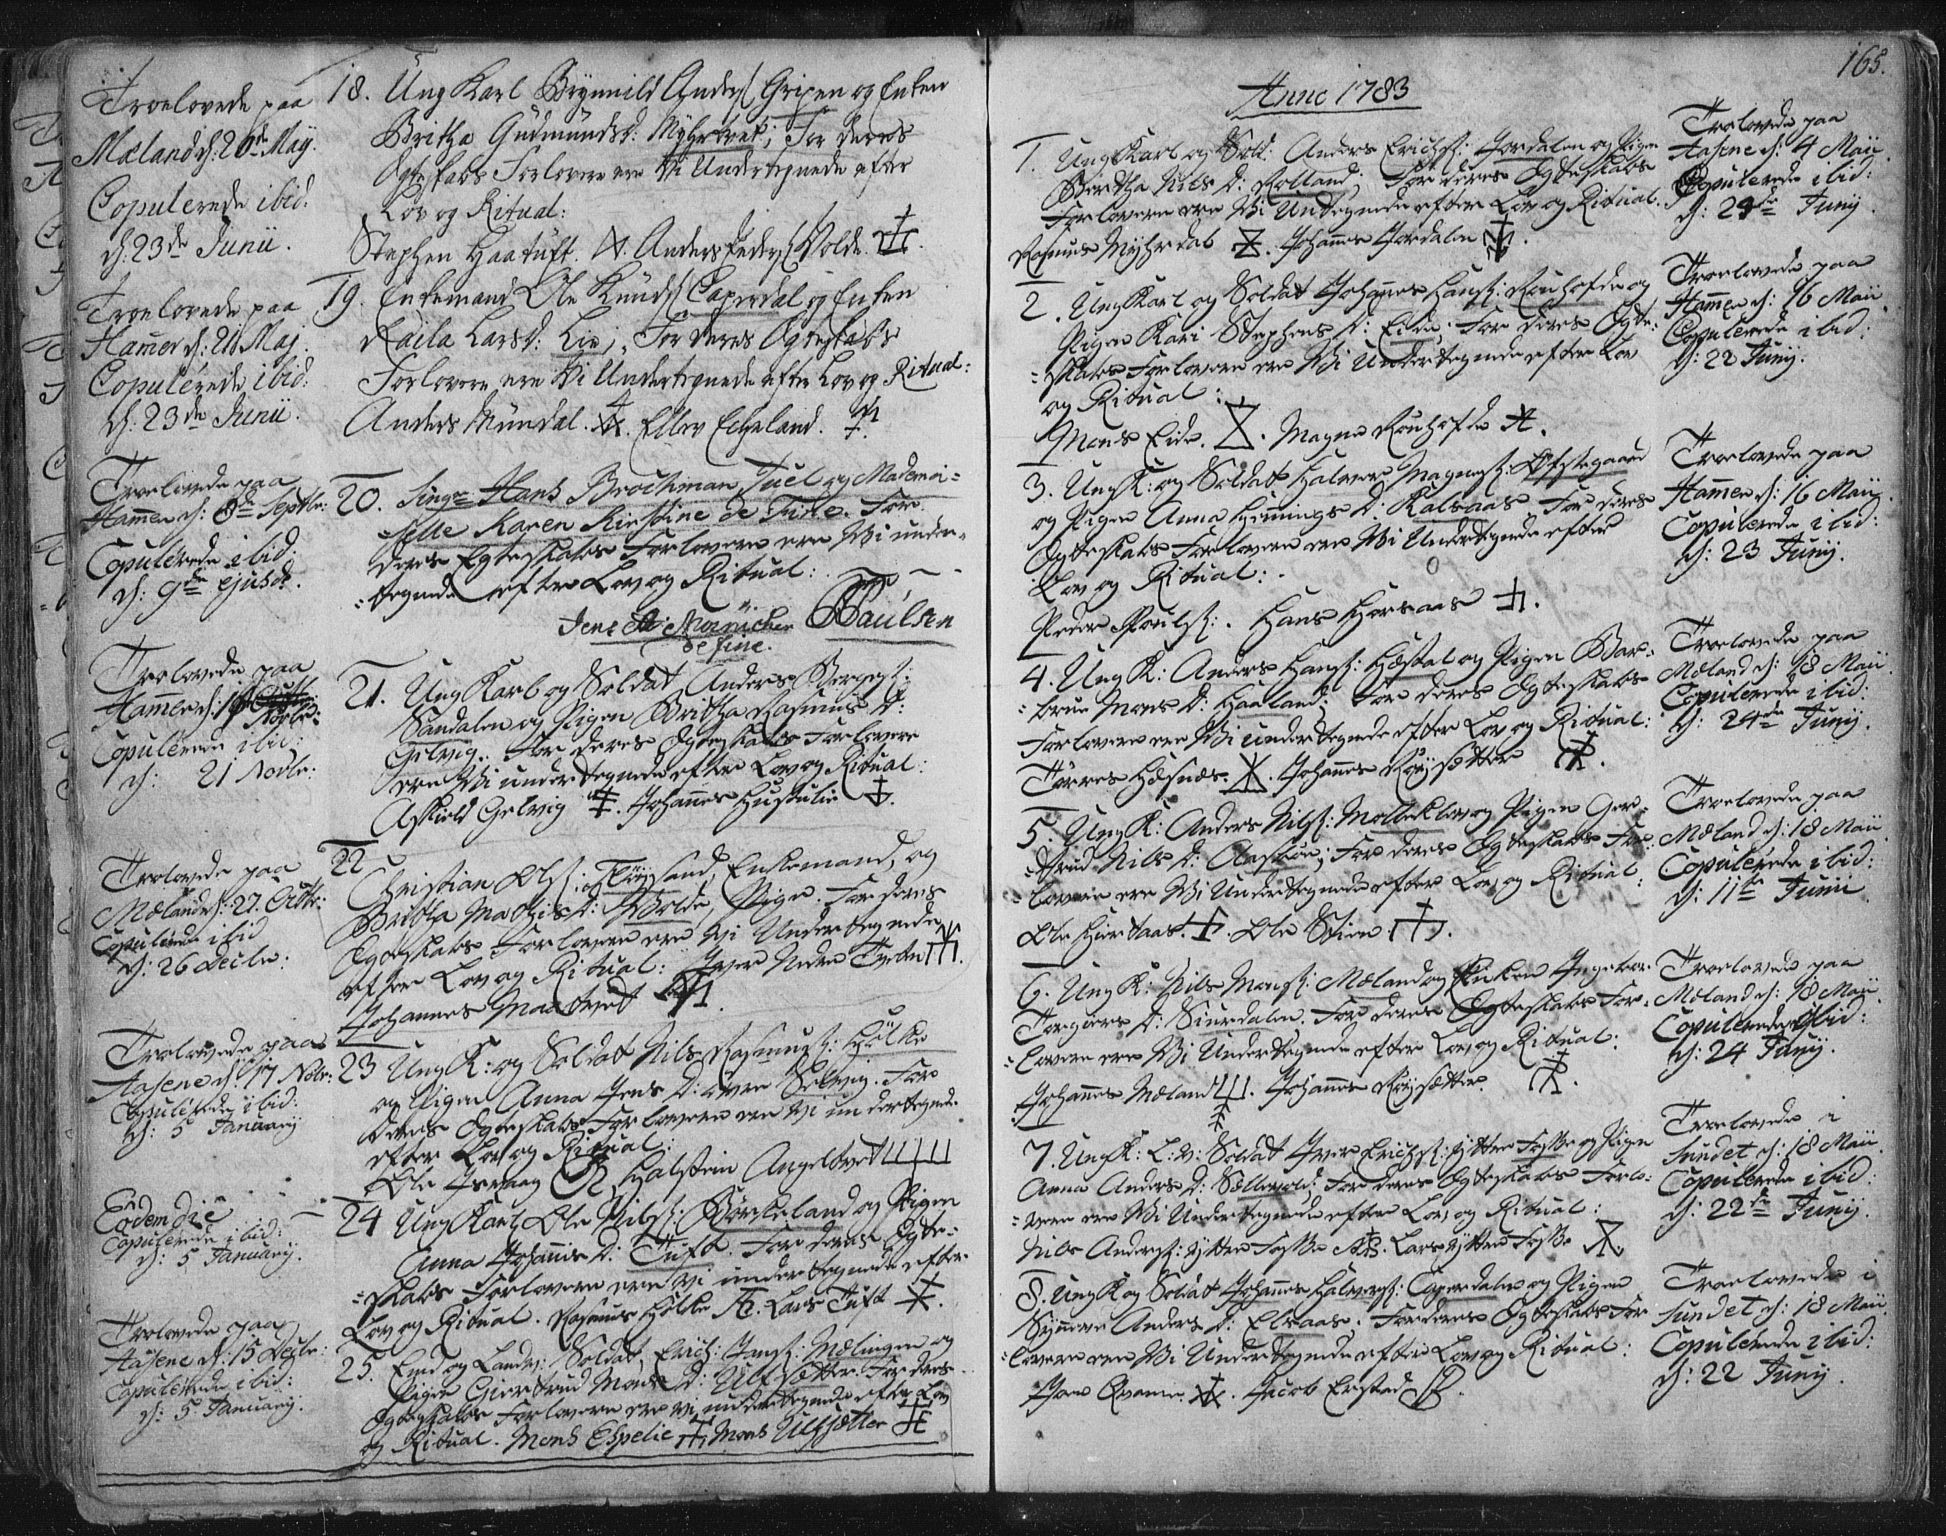 Troelovede paa
Mæland d: 20de Maÿ.
Copulerede ibid:
d: 23de Junii.
18. Ung Karl Brynnild Anders: Gripen og Enken
Britha Gudmundsd: Myhrtvet; For deres
Ægteskabs Forlovere ere Vi Undertegnede efter
Lov og Ritual:
Stephen Haatuft. Anders Peders: Wolde.
Troelovede paa
Hamer d: 21 Maj.
Copulerede ibid:
d: 23de Junii.
19. Enkemand Ole Knuds: Caperdal og Enken
Larsd: Lie; For deres Ægteskabs
Forlovere ere Vi Undertegnede efter Lov og Ritual:
Anders Mundal. Ellev Echeland.
Troelovede paa
Hammer d: 8de Septbr:
Copulerede ibid:
d: 9de ejusd:
20. Hans Brochman Juel og Mademoi-
selle Karen Kirstine de Fine. For
deres Egteskabs Forlovere ere Vi under-
tegnede efter Lov og Ritual:
de Fine. Paulsen
Troelovede paa
Hammer d: 1
Novbr:
Copulerede ibid:
d: 21 Novbr:
21. Ung Karl og Soldat Anders Børges:
Sandalen og Pigen Britha Rasmus D:
Gielvig. For deres Egteskabs Forlovere
ere Vi undertegnede efter Lov og Ritual:
Askield Gelvig. Johannes Hustulie
Troelovede paa
Mæland d: 27. Octbr:
Copulerede ibid
d: 26 Decbr:
22
Christian Ols: Fløysand, Enkemand, og
Britha Mathis D: Wolde, Pige. For deres
Egteskabs Forlovere ere Vi Undertegnede
efter Lov og Ritual: Iver Nedre Tvedt
Johannes Maartvedt
Troelovede paa
Aasene d: 17 Novbr:
Copulerede ibid:
d: 5 Januarij
23 Ung K: og Soldat Nils Rasmus: Hølke
og Pigen Anna Jens D: øvre Selvig. For
deres Egteskabs Forlovere ere Vi undertegnede
efter Lov og Ritual:
Ole Isvaag Halstein Angeltvet
Eodem die
Copulerede ibid:
d: 5 Januarij.
24 Ung Karl Ole Nils: Børkeland og Pigen
Anna Johannis D: Tuft. For deres Egte-
skabs Forlovere ere Vi undertegnede efter
Lov og Ritual. Rasmus Hølke. Lars Tuft
Troelovede paa
Aasene d: 15 Decbr:
Copulerede ibid:
d: 5 Januarij.
25. og Landv: Soldat, Erich Jans: Mælingen og
Pigen Giertrud Mons D: Ulfsætter. For deres
Egteskabs Forlovere ere vi undertegnede efter Lov
og Ritual. Mons Espelie Mons Ulfsætter
165.
Anno 1783
1. Ung Karl og Sold: Anders Erichs: Jordalen og Pigen
Birtha Nils D: Rolland; For deres Egteskabs
Forlovere ere Vi Undtegnede efter Lov og Ritual.
Rasmus Myhrdal. Johannes Jordalen
Troelovede paa
Aasene d: 4 Maii.
Copulerede ibid:
d: 24de Junij.
2. Ung Karl og Soldat Johannes Hans: Rønhofde og
Pigen Kari Stephens D: Eide. For deres Egte-
-skabs Forlovere ere Vi Undertegnede efter Lov
og Ritual:
Mons Eide. Magne Rønhofde
Troelovede paa
Hammer d: 16 Maii
Copulerede ibid:
d: 22 Junij.
3. Ung K: og Soldat Halvor Magnes: Øfstegaard
og Pigen Anna Hemmings D: Kalsaas. For deres
Egteskabs Forlovere ere Vi Undertegnede efter
Lov og Ritual:
Peder Pouls:. Hans Horsaas
Troelovede paa
Hammer d: 16 Maii
Copulerede ibid:
d: 23 Junij.
4. Ung K: Anders Hans: Hæstal og Pigen Bar-
-broe Mons D: Haaland. For deres Egteskabs
Forlovere ere Vi undertegnede efter Lov og Ritual:
Torres Hæsnæs. Johannes Røysætter
Troelovede paa
Mæland d: 18 Maii
Copulerede ibid:
d: 24de Junij.
5. Ung K: Anders Nils: Møllerklev og Pigen Ger-
-thrud Nils D: For deres Egteskabs For-
-lovere ere Vi Undertegnede efter Lov og Ritual:
Ole Hiortaas. Ole Stien
Troelovede paa
Mæland d: 18 Maii
Copulerede ibid:
d: 11te Junii
6. Ung K: Nils Mons: Mæland og Enken Ingebor
Torgiers D: Siurdalen. For deres Egteskabs For-
-lovere ere Vi Undertegnede efter Lov og Ritual:
Johannes Mæland. Johannes Røysætter.
Troelovede paa
Mæland d: 18 Maii
Copulerede ibid:
d: 24 Junij.
7. Ung K: L: v: Soldat Iver Erichs: Yttre Fosse og Pigen
Anna Anders D: Sollesvold; For deres Egteskabs Forlo-
-vere ere Vi Undertegnede efter Lov og Ritual:
Nils Anders: Yttre Fosse. Lars Yttre Fosse
Troelovede i
Sundet d: 18 Maii
Copulerede ibid:
d: 22de Junij.
8. Ung K og Soldat Johannes Halvors: Caperdalen og Pigen
Synneve Anders D: Elsaas. For deres Egteskabs For-
-lovere ere Vi Undertegnede efter Lov og Ritual:
Jacob Erstad
Troelovede i
Sundet d: 18 Maii
Copulerede ibid:
d: 22 Junij.